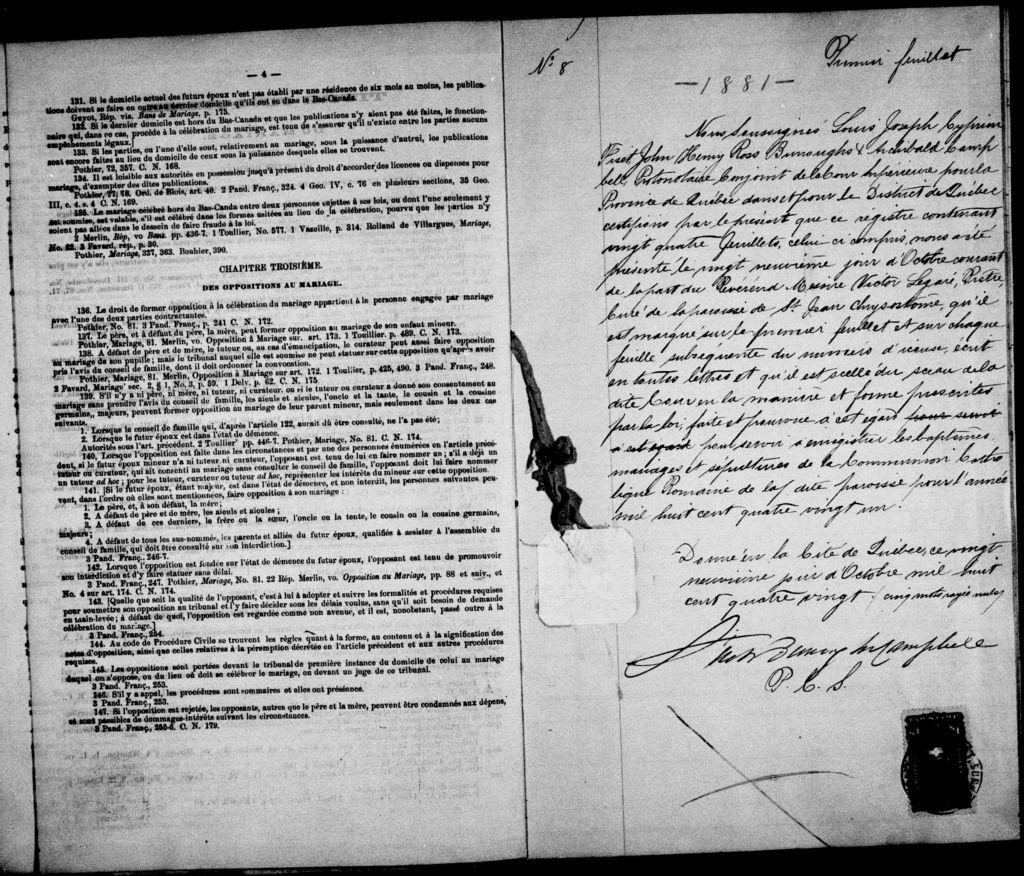 — 4 —
131. Si le domicile actuel des futurs époux n'est pas établi par une résidence de six mois au moins, les publica-
tions doivent se faire en outre au dernier domicile qu'ils ont eu dans le Bas-Canada.
Guyot, Rép. vis. Bans de Mariage, p. 175.
132. Si le dernier domicile est hors du Bas-Canada et que les publications n'y aient pas été faites, le fonction-
naire qui, dans ce cas, procède à la célébration du mariage, est tenu de s'assurer qu'il n'existe entre les parties aucuns
empêchements légaux.]
133. Si les parties, ou l'une d'elle sont, relativement au mariage, sous la puissance d'autrui, les publications
sont encore faites au lieu du domicile de ceux sous la puissance desquels elles se trouvent.
Pothier, 72, 357. C. N. 168.
134. Il est loisible aux autorités en possession jusqu'à présent du droit d'accorder des licences ou dispenses pour
mariage, d'exempter des dites publications.
Pothier, 77, 78. Ord. de Blois, art. 40. 2 Pand. Franç., 324. 4 Geo. IV, c. 76 en plusieurs sections, 35 Geo.
III, c. 4. s. 4 C. N. 169.
135. Le mariage célébré hors du Bas-Canada entre deux personnes sujettes à ses lois, ou dont l'une seulement y
est soumise, est valable, s'il est célébré dans les formes usitées au lieu de la célébration, pourvu que les parties n'y
soient pas allées dans le dessein de faire fraude à la loi.
2 Merlin, Rép, vo Bans. pp. 436-7. 1 Toullier, No. 577. 1 Vazeille, p. 314. Rolland de Villargues, Mariage,
No. 22. 3 Favard, rep., p. 30.
Pothier, Mariage, 327, 363. Bouhier, 390.
CHAPITRE TROISIÈME.
DES OPPOSITIONS AU MARIAGE.
136. Le droit de former opposition à la célébration du mariage appartient à la personne engagée par mariage
avec l'une des deux parties contractantes.
Pothier, No. 81. 3 Pand. Franç., p. 241 C. N. 172.
137. Le père, et à défaut du père, la mère, peut former opposition au mariage de son enfant mineur.
Pothier, Mariage, 81. Merlin, vo. Opposition à Mariage sur. art. 173. 1 Toullier, p. 489. C. N. 173.
138. A défaut de père et de mère, le tuteur ou, au cas d'émancipation, le curateur peut aussi faire opposition
au mariage de son pupille; mais le tribunal auquel elle est soumise ne peut statuer sur cette opposition qu'après avoir
pris l'avis du conseil de famille, dont il doit ordonner la convocation.
Pothier, Mariage, 81. Merlin, Opposition à Mariage sur art. 172. 1 Toullier, p. 425, 490. 3 Pand. Franç., 248.
2 Favard, Mariage sec. 2, § 1, No. 3, p. 59. 1 Delv. p. 62. C. N. 175.
139. S'il n'y a ni père, ni mère, ni tuteur, ni curateur, ou si le tuteur ou curateur a donné son consentement au
mariage sans prendre l'avis du conseil de famille, les aïeuls et aïeules, l'oncle et la tante, le cousin et la cousine
germains, majeurs, peuvent former opposition au mariage de leur parent mineur, mais seulement dans les deux cas
suivants.
1. Lorsque le conseil de famille qui, d'après l'article 122, aurait dû être consulté, ne l'a pas été;
2. Lorsque le futur époux est dans l'état de démence.
Autorités sous l'art. précédent. 2 Toullier pp. 446-7. Pothier, Mariage, No. 81. C. N. 174.
140. Lorsque l'opposition est faite dans les circonstances et par une des personnes énumérées en l'article précé-
dent, si le futur époux mineur n'a ni tuteur ni curateur, l'opposant est tenu de lui en faire nommer un; s'il a déjà un
tuteur ou curateur, qui ait consenti au mariage sans consulter le conseil de famille, l'opposant doit lui faire nommer
un tuteur ad hoc; pour les tuteur, curateur ou tuteur ad hoc, représenter les intérêts du mineur sur cette opposition.
141. [Si le futur époux, étant majeur, est dans l'état de démence, et non interdit, les personnes suivantes peu-
vent, dans l'ordre où elles sont mentionnées, faire opposition à son mariage:
1. Le père, et, à son défaut, la mère;
2. A défaut de père et de mère, les aïeuls et aïeules;
3. A défaut de ces derniers, le frère ou la sœur, l'oncle ou la tante, le cousin ou la cousine germains,
majeurs;
4. A défaut de tous les sus-nommés, les parents et alliés du futur époux, qualifiés à assister à l'assemblée du
conseil de famille, qui doit être consulté sur son interdiction.]
3 Pand. Franç., 246-7.
142. Lorsque l'opposition est fondée sur l'état de démence du futur époux, l'opposant est tenu de promouvoir
son interdiction et d'y faire statuer sans délai.
3 Pand. Franç., 247. Pothier, Mariage, No. 81. 22 Rép. Merlin, vo. Opposition au Mariage, pp. 88 et suiv., et
No. 4 sur art. 174. C. N. 174.
143. [Quelque soit la qualité de l'opposant, c'est à lui à adopter et suivre les formalités et procédures requises
pour soumettre son opposition au tribunal et l'y faire décider sous les délais voulus, sans qu'il soit besoin de demande
en main-levée; à défaut de quoi, l'opposition est regardée comme non avenue, et il est, nonobstant, passé outre à la
célébration du mariage.]
3 Pand. Franç., 254.
144. Au code de Procédure Civile se trouvent les règles quant à la forme, au contenu et à la signification des
actes d'opposition, ainsi que celles relatives à la péremption décrétée en l'article précédent et aux autres procédures
requises.
145. Les oppositions sont portées devant le tribunal de première instance du domicile de celui au mariage
duquel on s'oppose, ou du lieu où doit se célébrer le mariage, ou devant un juge de ce tribunal.
3 Pand. Franç., 253.
146. S'il y a appel, les procédures sont sommaires et elles ont préséance.
3 Pand. Franç., 253.
147. Si l'opposition est rejetée, les opposants, autres que le père et la mère, peuvent être condamnés aux dépens,
et sont passibles de dommages-intérêts suivant les circonstances.
3 Pand. Franç., 255-6. C. N. 179.
No 8
Premier feuillet
— 1881 —
Nous Soussignés Louis Joseph Cyprien
Fiset John Henry Ross Burroughs & Archibald Camp
bell Protonotaire Conjoint de la Cour Supérieure pour la
Province de Québec dans et pour le District de Québec
certifions par le présent que ce registre contenant
vingt quatre feuillets, celui-ci compris, nous a été
présenté le vingt neuvième jour d'Octobre courant
de la part du Révérend Messire Victor Légaré, Prêtre,
Curé de la paroisse de St. Jean Chrysostome, qu'il
est marqué sur le premier feuillet et sur chaque
feuille subséquente du numéro d'iceuse, écrit
en toutes lettres et qu'il est scellé du sceau de la
dite Cour en la manière et forme prescrites
par la loi, faite et pourvue à cet égard pour servir
à cet égard pour servir à enregistrer les baptêmes
mariages et sépultures de la Communion Catho
lique Romaine de la dite paroisse pour l'année
mil huit cent quatre vingt un.
Donné en la Cité de Québec, ce vingt
neuvième jour d'Octobre mil huit
cent quatre vingt. cinq mots rayés nuls
Fiset Burroughs & Campbell
P. C. S.